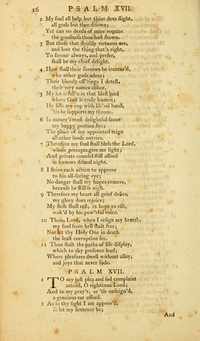 26 PSALM XVII.
2 My soul all help but thine does slight,
all gods but thee disown;
Yet can no deeds of mine requite
the goodness thou hast shown.
3 But those that strictly virtuous are,
and love the thing that's right,
To favour always, and prefer,
shall be my chief delight.
4 How shall their sorrows be increas'd,
who other gods adore;
Their bloody off'rings I detest,
their very names abhor.
5 My lot is fall'n in that blest land
where God is truly known;
He fills my cup with lib'ral hand,
'tis he supports my throne.
6 In nature's most delightful scene
my happy portion lies;
The place of my appointed reign
all other lands outvies.
7 Therefore my soul shall bless the Lord,
whose precepts give me light;
And private counsel still afford
in sorrow's dismal night.
8 I strive each action to approve
to his all-seeing eye;
No danger shall my hopes remove,
because he still is nigh.
9 Therefore my heart all grief defies,
my glory does rejoice;
My flesh shall rest, in hope to rise,
wak'd by his pow'rful voice.
10 Thou, Lord, when I resign my breath,
my soul from hell shalt free;
Nor let thy Holy One in death
the least corruption see.
11 Thou shalt the paths of life display,
which to thy presence lead;
Where pleasures dwell without allay,
and joys that never fade.
PSALM XVII.
TO my just plea and sad complaint
attend, O righteous Lord;
And to my pray'r, as 'tis unfeign'd,
a gracious ear afford.
2 As in thy sight I am approv'd,
so let my sentence be;
And